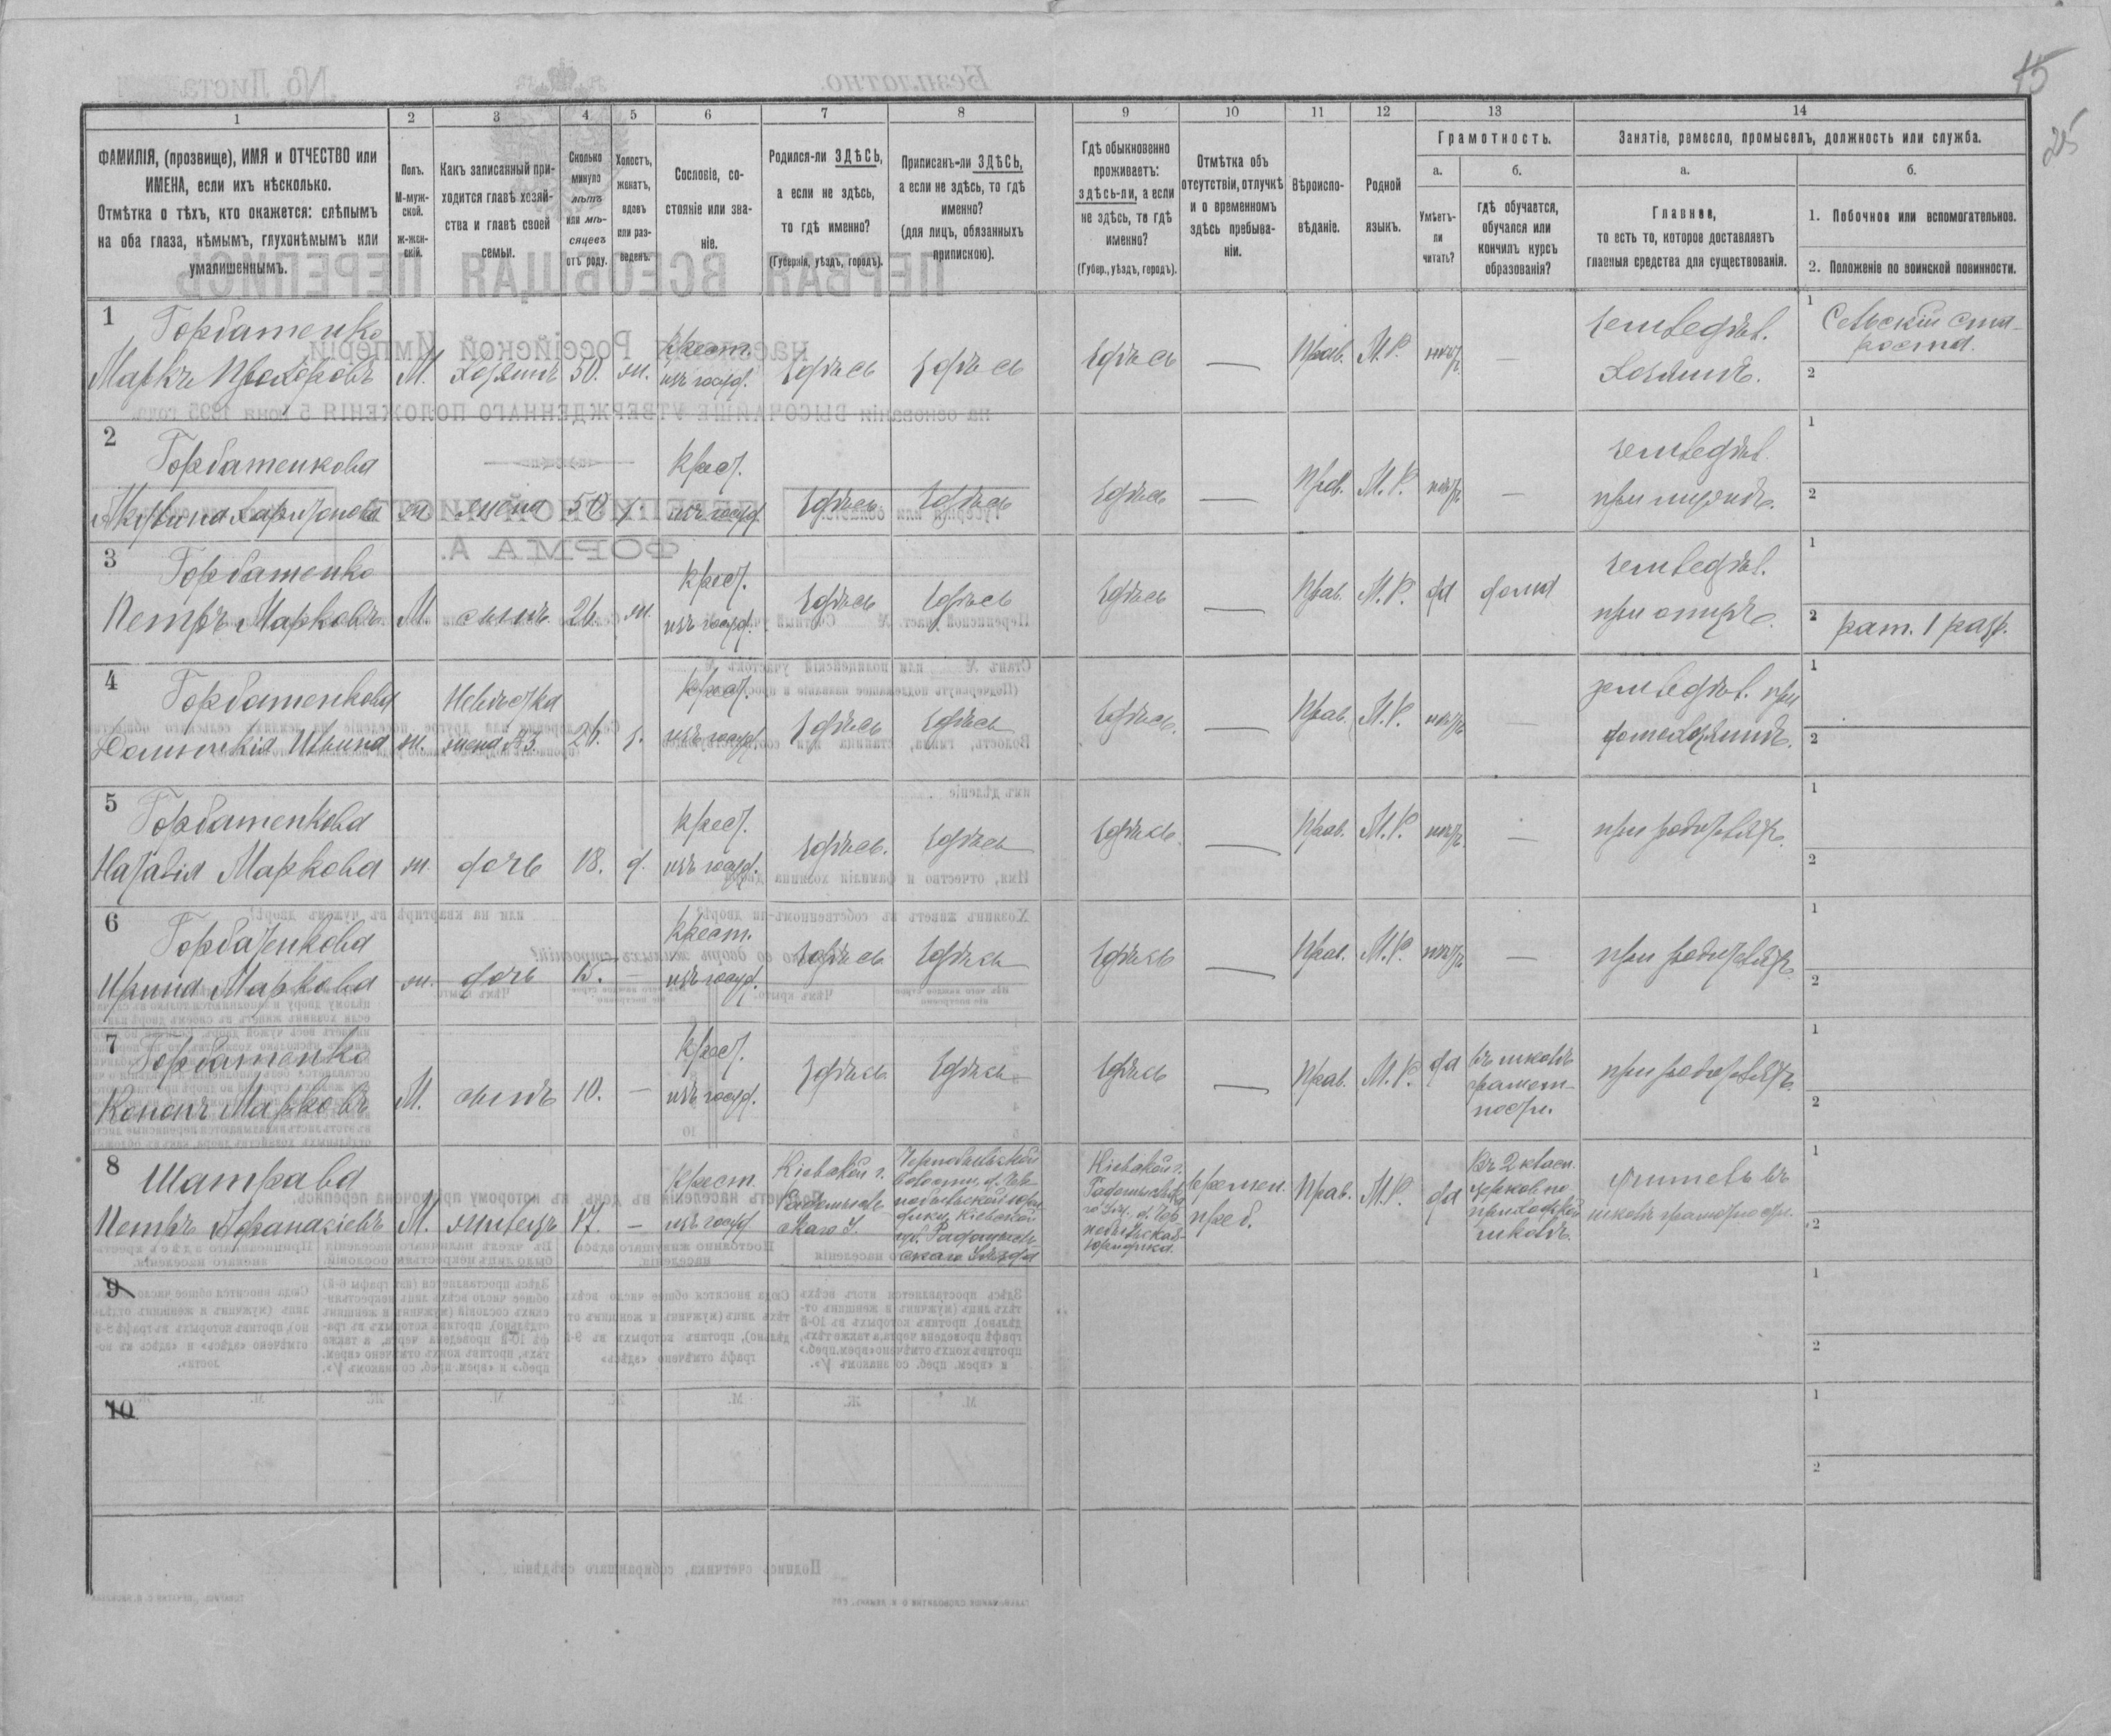 15
25
1 2 3 4 5 6 7 8 9 10 11 12 13 14
ФАМИЛІЯ, (прозвище), ИМЯ и ОТЧЕСТВО или
ИМЕНА, если ихъ нѣсколько.
Отмѣтка о тѣхъ, кто окажется: слѣпымъ
на оба глаза, нѣмымъ, глухонѣмымъ или
умалишеннымъ.
Полъ.
М-муж-
ской.
ж-жен-
скій.
Какъ записанный при-
ходится главѣ хозяй-
ства и главѣ своей
семьи.
Сколько
минуло
лѣтъ
или мѣ-
сяцевъ
отъ роду.
Холостъ,
женатъ,
вдовъ
или раз-
веденъ.
Сословіе, со-
стояніе или зва-
ніе.
Родился-ли ЗДѢСЬ,
а если не здѣсь,
то гдѣ именно?
(Губернія, уѣздъ, городъ).
Приписанъ-ли ЗДѢСЬ,
а если не здѣсь, то гдѣ
именно?
(для лицъ, обязанныхъ
припискою).
Гдѣ обыкновенно
проживаетъ:
здѣсь-ли, а если
не здѣсь, то гдѣ
именно?
(Губер., уѣздъ, городъ).
Отмѣтка объ
отсутствіи, отлучкѣ
и о временномъ
здѣсь пребыва-
ніи.
Вѣроиспо-
вѣданіе.
Родной
языкъ.
Грамотность.
а.
Умѣетъ-
ли
читать?
б.
гдѣ обучается,
обучался или
кончилъ курсъ
образованія?
Занятіе, ремесло, промыселъ, должность или служба.
а.
Главное,
то есть то, которое доставляетъ
главныя средства для существованія.
б.
1. Побочное или вспомогательное.
2. Положеніе по воинской повинности.
1
Горбатенко
Маркъ Прохоровъ
М.
хозяинъ
50.
ж.
крест.
изъ госуд.
здѣсь
здѣсь
здѣсь
—
Прав.
М.Р.
нѣтъ
—
земледѣл.
хозяинъ.
1
Сельскій ста-
роста.
2
2
Горбатенкова
Акулина Харитонова
ж
жена
50
з.
крест.
изъ госуд.
здѣсь
здѣсь
здѣсь
—
Прав.
М.Р.
нѣтъ
—
земледѣл.
при мужѣ.
1
2
3
Горбатенко
Петръ Марковъ
М.
сынъ
26.
ж.
крест.
изъ госуд.
здѣсь
здѣсь
здѣсь
—
Прав.
М.Р.
да
дома
земледѣл.
при отцѣ.
1
2
рат. 1 разр.
4
Горбатенкова
Домникія Ильина
ж.
невѣстка
жена №3
24.
з.
крест.
изъ госуд.
здѣсь
здѣсь
здѣсь
—
Прав.
М.Р.
нѣтъ
—
земледѣл. при
домохозяинѣ.
1
2
5
Горбатенкова
Наталія Маркова
ж.
дочь
18.
д.
крест.
изъ госуд.
здѣсь
здѣсь
здѣсь
—
Прав.
М.Р.
нѣтъ
—
при родителяхъ.
1
2
6
Горбатенкова
Ирина Маркова
ж.
дочь
15.
—
крест.
изъ госуд.
здѣсь
здѣсь
здѣсь
—
Прав.
М.Р.
нѣтъ
—
при родителяхъ.
1
2
7
Горбатенко
Кононъ Марковъ
М.
сынъ
10.
—
крест.
изъ госуд.
здѣсь
здѣсь
здѣсь
—
Прав.
М.Р.
да
въ школѣ
грамот-
ности.
при родителяхъ
1
2
8
Шатрава
Петръ Афанасіевъ
М.
жилецъ
17.
—
крест.
изъ госуд
Кіевской г.
Радомысль-
скаго у.
Чернобыльской
волости,
Кіевской
губ. Радомысль-
скаго уѣзда
Кіевской г.
времен.
преб.
Прав.
М.Р.
да
Въ 2 класн.
церковно
приходской
школѣ.
учитель въ
школѣ грамотности.
1
2
9
1
2
10
1
2